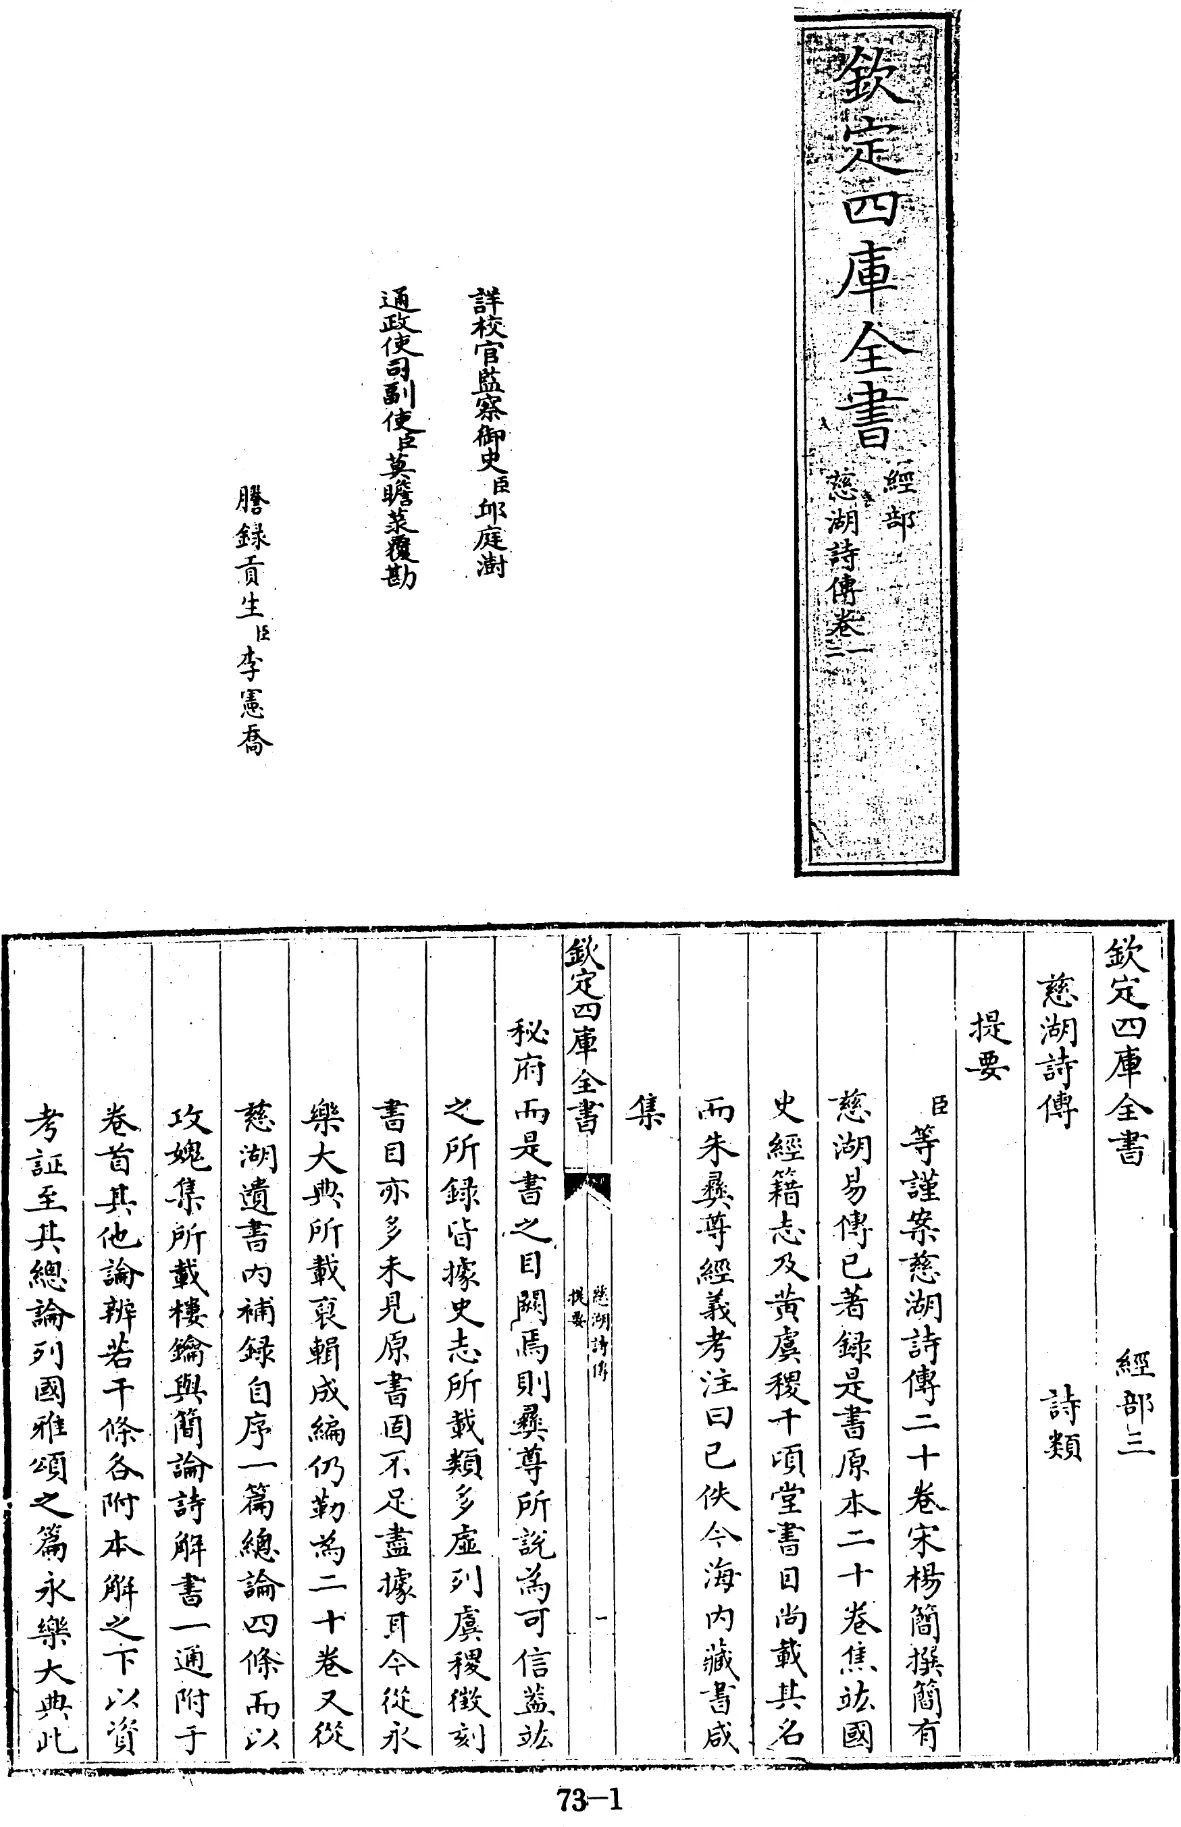 欽定四庫全書
經部
慈湖詩傳卷一
二
詳校官監察御史臣邱庭澍
通政使司副使臣莫瞻菉覆勘
謄錄貢生臣李憲喬
欽定四庫全書 經部三
慈湖詩傳 詩類
提要
臣等謹案慈湖詩傳二十卷宋楊簡撰簡有
慈湖易傳已著錄是書原本二十卷焦竑國
史經籍志及黃虞稷千頃堂書目尚載其名
而朱彝尊經義考注曰已佚今海內藏書咸
集
欽定四庫全書
慈湖詩傳
提要
一
秘府而是書之目闕焉則彝尊所說為可信蓋竑
之所錄皆據史志所載類多虛列虞稷徵刻
書目亦多未見原書固不足盡據耳今從永
樂大典所載裒輯成編仍勒為二十卷又從
慈湖遺書內補錄自序一篇總論四條而以
攻媿集所載樓鑰與簡論詩解書一通附于
卷首其他論辨若干條各附本解之下以資
考証至其總論列國雅頌之篇永樂大典此
73-1